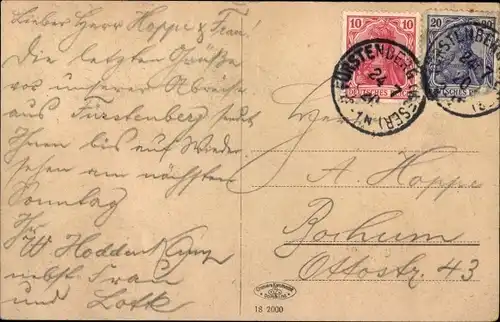 Lieber Herr Hoppe & Frau!
Die letzten Grüße
vor unserer Abreise
aus Fürstenberg sendet
Ihnen bis auf Wieder
sehen am nächsten
Sonntag
Ihr
W
nebst Frau
und Lotte
10
DEUTSCHES REICH
20
FÜRSTENBERG (WESER)
24 7
Herrn
A. Hoppe
Bochum
Ottostr. 43
18 2000